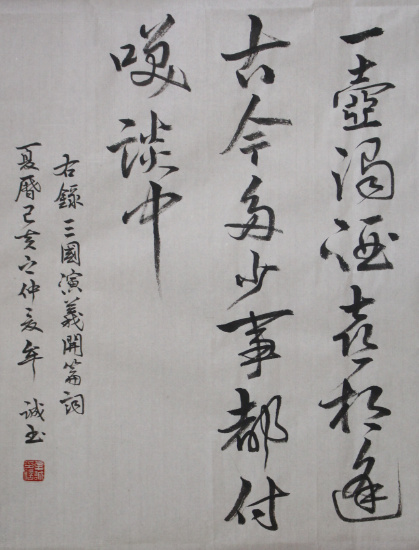 一壺濁酒喜相逢
古今多少事都付
咲談中
右錄三國演義開篇詞
夏曆己亥之仲夏年 誠書